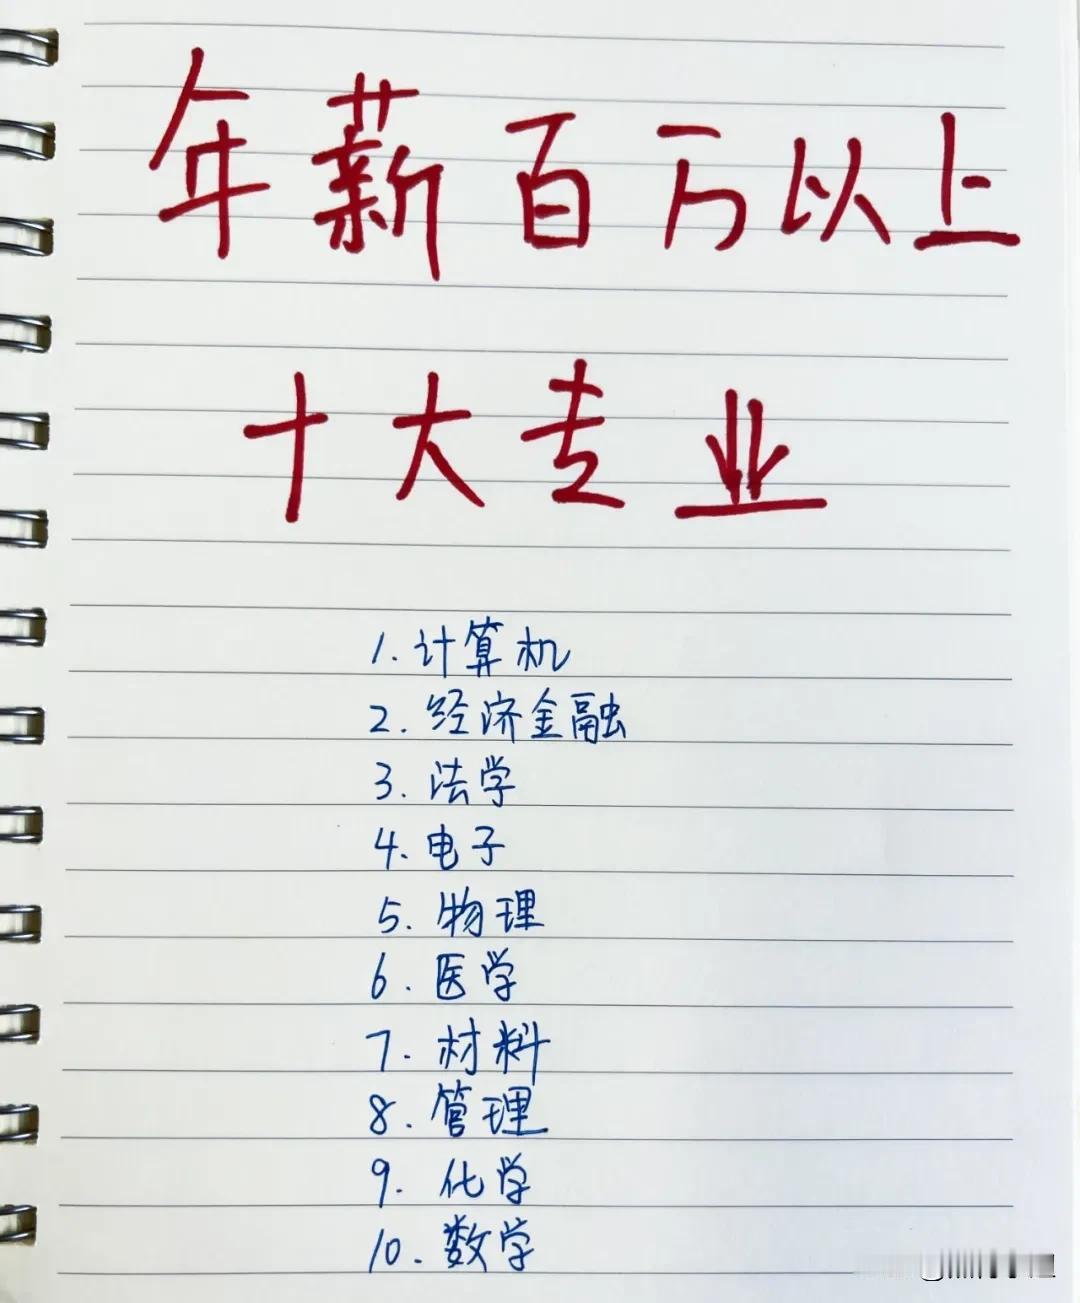 年薪百万以上
十大专业
1. 计算机
2. 经济金融
3. 法学
4. 电子
5. 物理
6. 医学
7. 材料
8. 管理
9. 化学
10. 数学